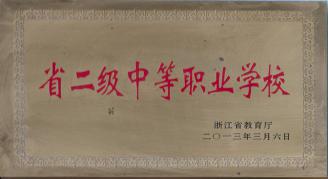 省二级中等职业学校
浙江省教育厅
二〇一三年三月六日